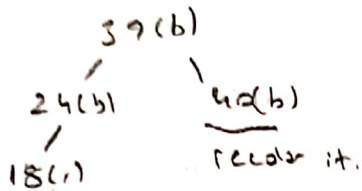 39(b)
24(b) 40(b)
18(r)
recolor it.